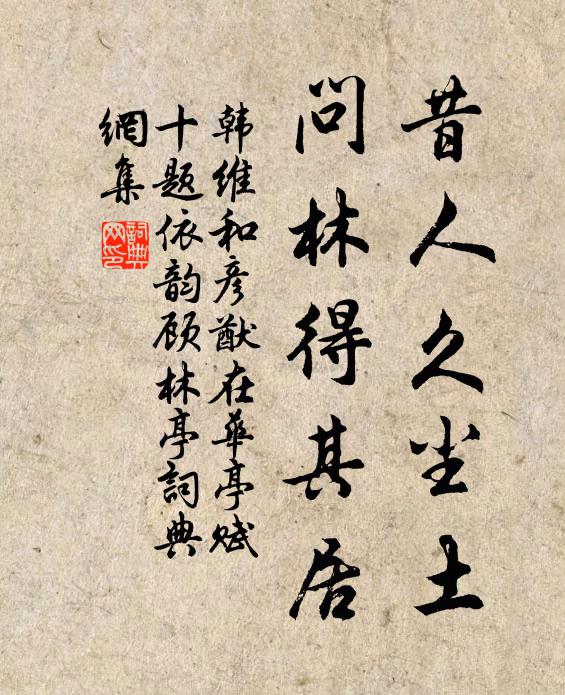 昔人久尘土
问林得其居
韩维和彦猷在華亭赋
十题依韵顾林亭詞典
網集
詞典网印